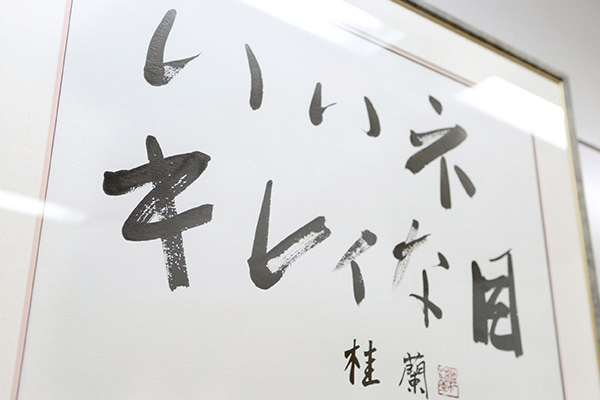 いいネ
キレイな目
桂蘭